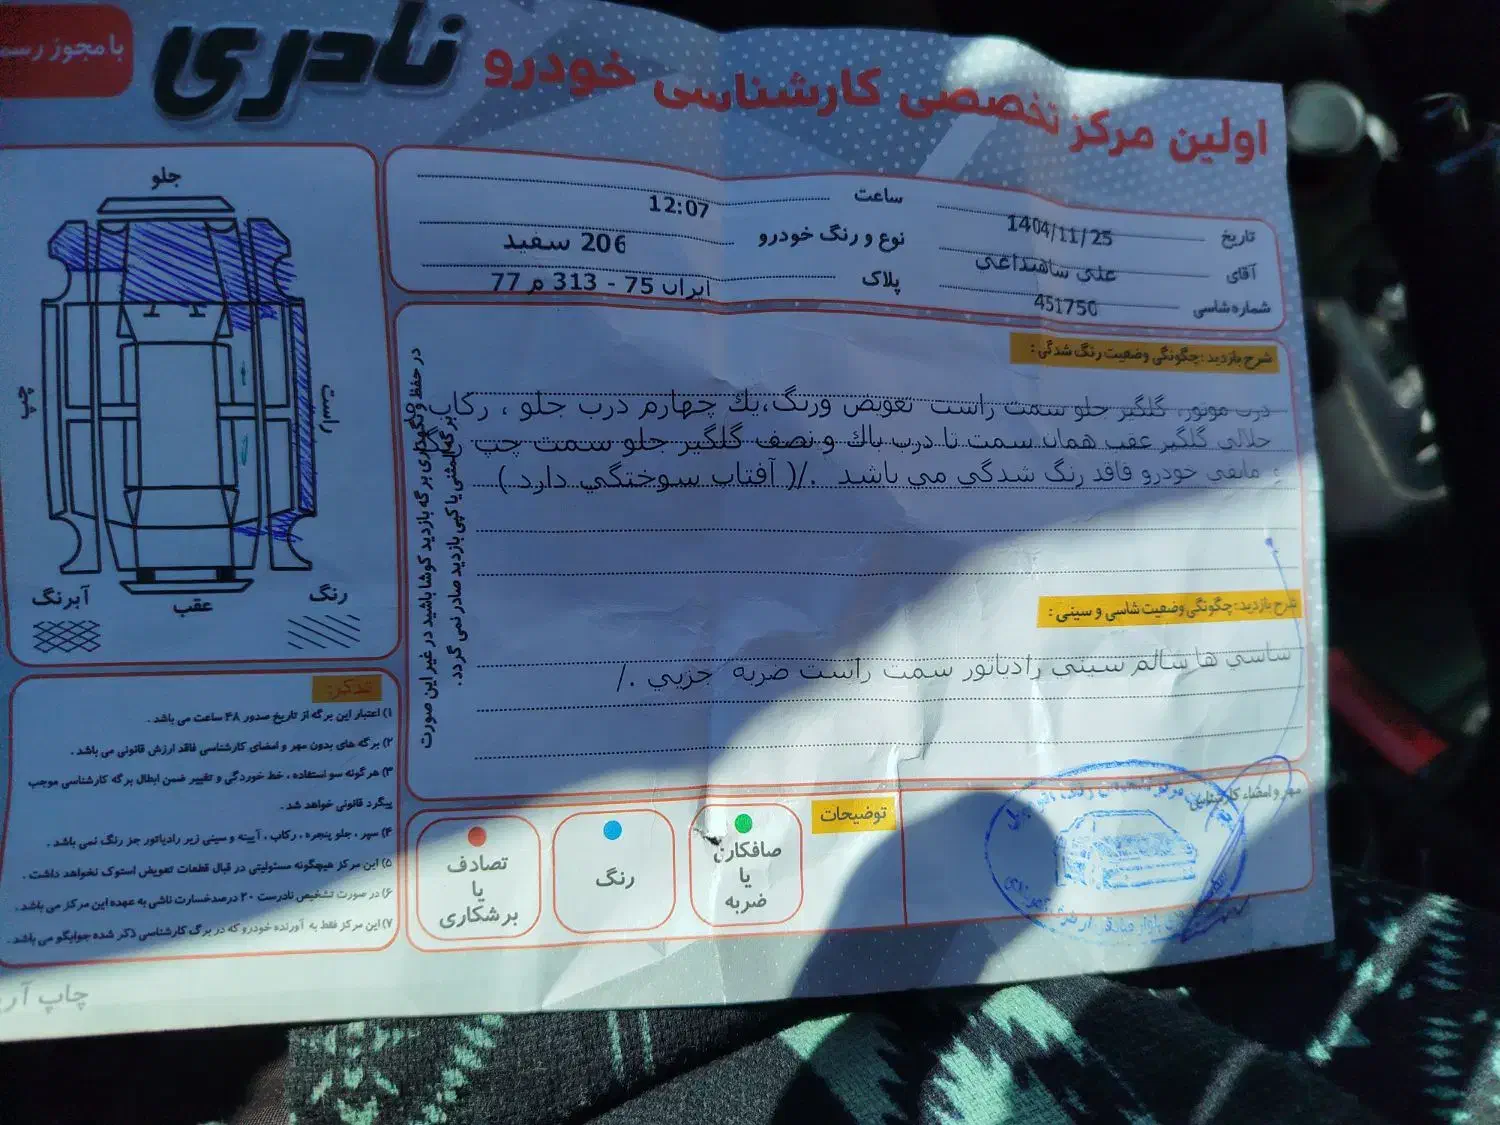 با مجوز رسم
نادری
اولین مرکز تخصصی کارشناسی خودرو
تاریخ 1404/11/25
ساعت 12:07
آقای علی شاهبداغی
نوع و رنگ خودرو 206 سفید
شماره شاسی 451750
پلاک ایران 75 - 313 م 77
شرح بازدید : چگونگی وضعیت رنگ شدگی :
درب موتور، گلگیر جلو سمت راست تعویض ورنگ،یك چهارم درب جلو ، رکاب
حلالي گلگیر عقب همان سمت تا درب باك و نصف گلگیر جلو سمت چپ
مابقي خودرو فاقد رنگ شدگي مي باشد ./( آفتاب سوختگي دارد )
شرح بازدید : چگونگی وضعیت شاسی و سینی :
شاسي ها سالم سيني رادياتور سمت راست ضربه جزيي ./
در حفظ و نگهداری برگه بازدید کوشا باشید در غیر این صورت
برگه المثنی یا کپی بازدید صادر نمی گردد.
جلو
چپ
راست
عقب
آبرنگ
رنگ
تذکر:
۱) اعتبار این برگه از تاریخ صدور ۴۸ ساعت می باشد .
۲) برگه های بدون مهر و امضای کارشناسی فاقد ارزش قانونی می باشد .
۳) هر گونه سو استفاده ، خط خوردگی و تغییر ضمن ابطال برگه کارشناسی موجب
پیگرد قانونی خواهد شد .
۴) سپر ، جلو پنجره ، رکاب ، آیینه و سینی زیر رادیاتور جز رنگ نمی باشد .
۵) این مرکز هیچگونه مسئولیتی در قبال قطعات تعویض استوک نخواهد داشت .
۶) در صورت تشخیص نادرست ۲۰ درصدخسارت ناشی به عهده این مرکز می باشد .
۷) این مرکز فقط به آورنده خودرو که در برگ کارشناسی ذکر شده جوابگو می باشد .
توضیحات
صافکاری
یا
ضربه
رنگ
تصادف
یا
برشکاری
مهر و امضاء کارشناس
چاپ آر